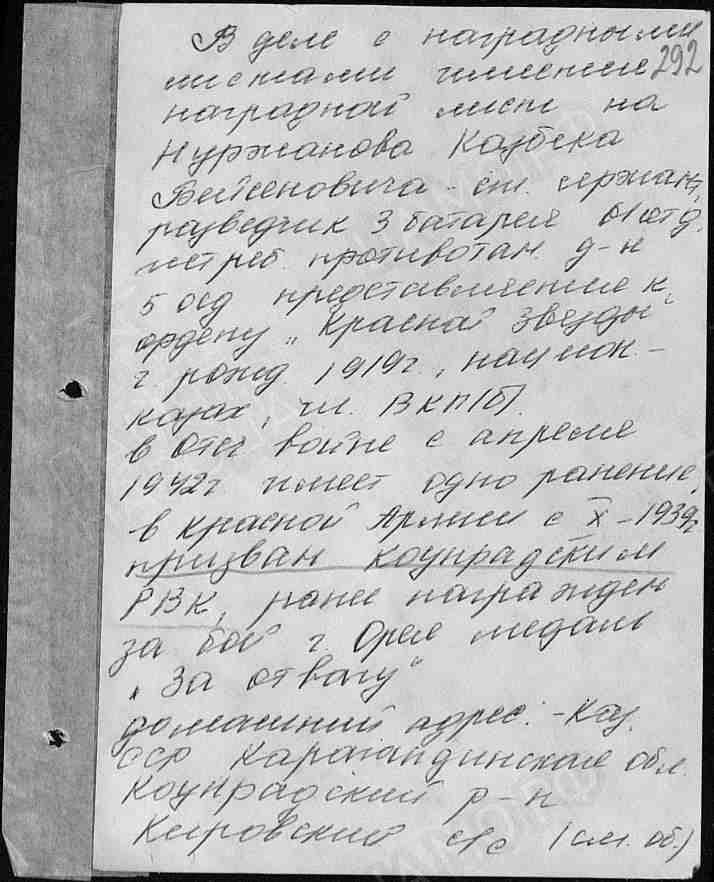 В деле с наградными
листами имеется 292
наградной лист на
Нуржанова Казбека
Бейсеновича - ст. сержант,
разведчик 3 батареи отд.
истреб. противотан. д-н
5 осд представление к
ордену "Красной Звезды"
г рожд. 1919г., нац.
казах, чл. ВКП(б).
в отеч войне с апреля
1942г имеет одно ранение,
в Красной Армии с X-1939г
призван Коунрадским
РВК, ранее награжден
за бой г. Орел медаль
"За отвагу"
домашний адрес: - Каз.
ССР Карагандинская обл.
Коунрадский р-н
Кировский с/с (см. об.)